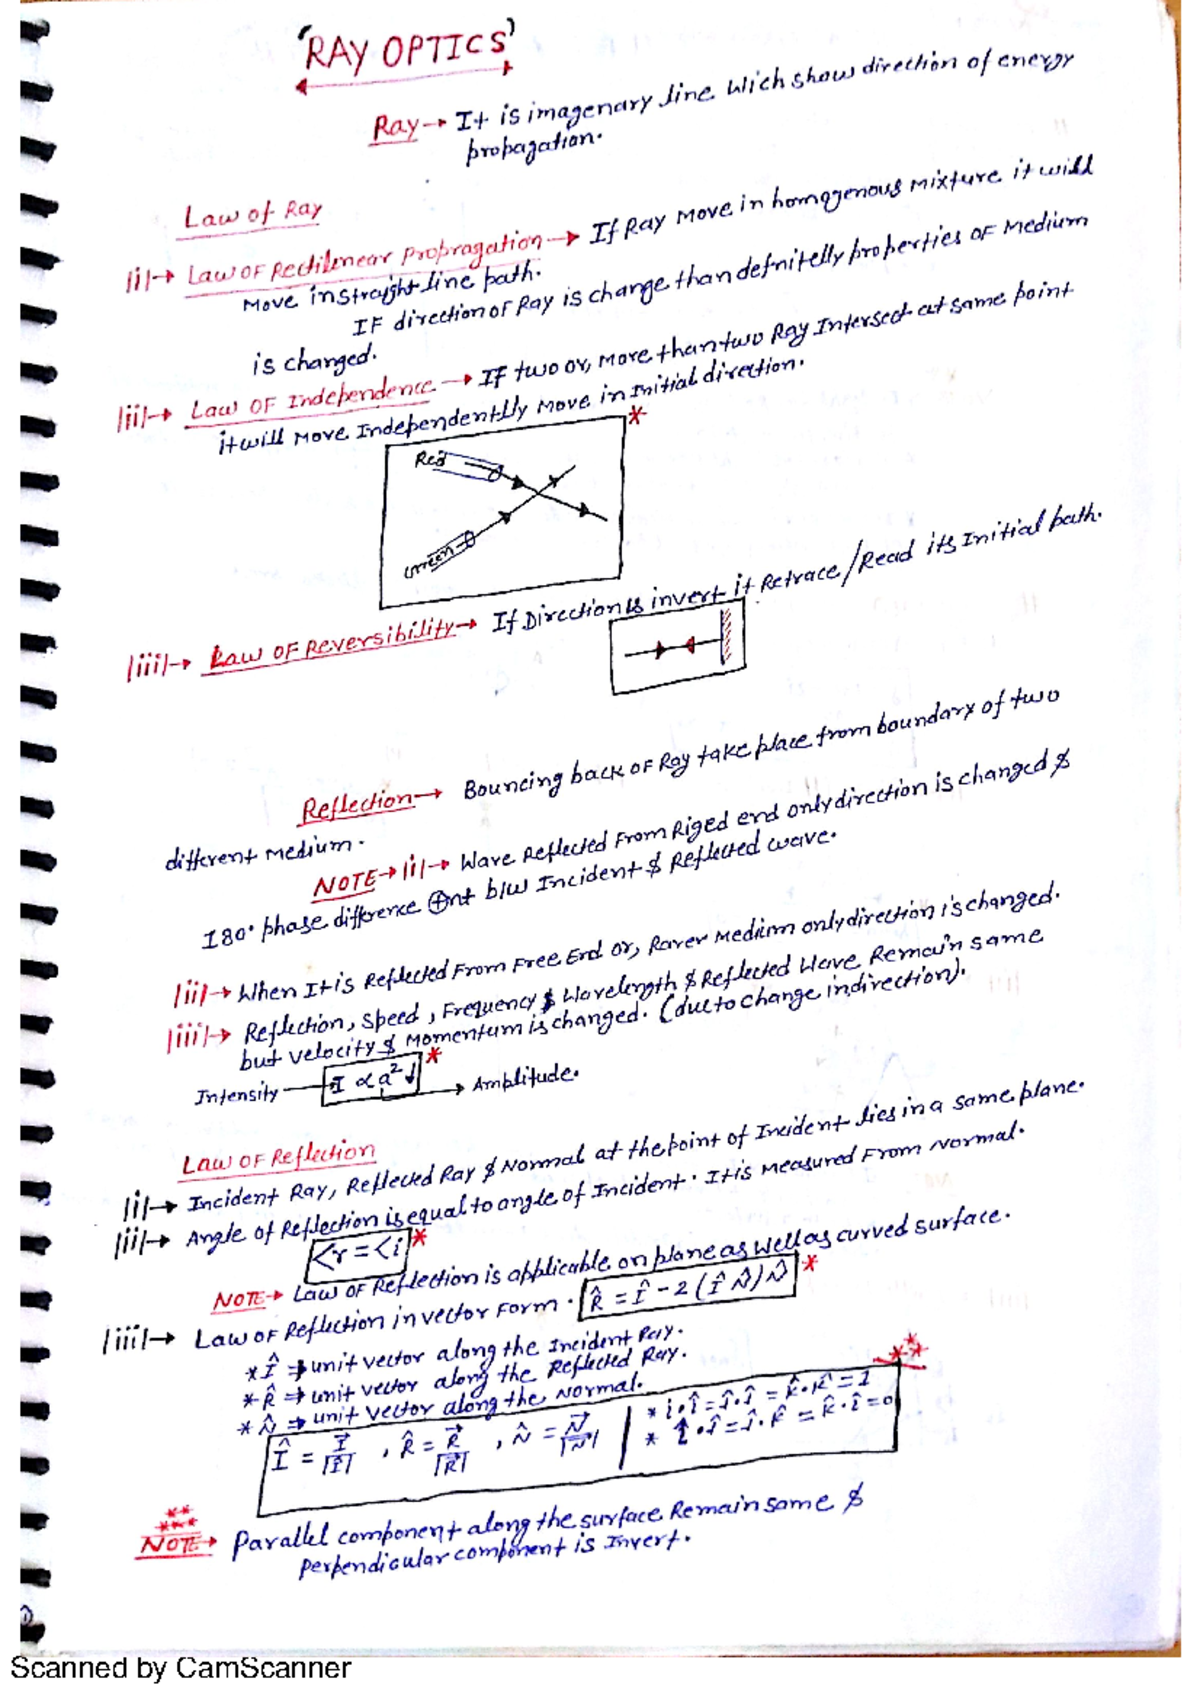 'RAY OPTICS'
Ray → It is imagenary line wich show direction of energy
propagation.
Law of Ray
|i|→ Law OF Rectilenear Propragation → If Ray Move in homogenous Mixture it will
Move in straight line path.
IF direction OF Ray is change than defnitelly properties OF Medium
is changed.
|ii|→ Law OF Independence → IF two or, More than two Ray Intersect at same point
it will Move Independentlly Move in Initial direction.
*
Red
Green
|iii|→ Law OF Reversibility → If Direction is invert it Retrace/Read its Initial path.
Reflection → Bouncing back OF Ray take place from boundary of two
different Medium.
NOTE → |i|→ Wave Reflected From Riged end only direction is changed &
180° phase difference b/w Incident & Reflected wave.
|ii|→ When It is Reflected From Free End or, Rarer Medium only direction is changed.
|iii|→ Reflection, Speed, Frequency & Wavelength & Reflected Wave Remain same
but velocity & Momentum is changed. (due to change in direction).
Intensity — I ∝ a² ↓ * → Amplitude.
Law OF Reflection
|i|→ Incident Ray, Reflected Ray & Normal at the point of Incident lies in a same plane.
|ii|→ Angle of Reflection is equal to angle of Incident. It is Measured From Normal.
<r = <i *
NOTE → Law OF Reflection is applicable on plane as well as curved surface.
|iii|→ Law OF Reflection in vector Form. R̂ = Î - 2 (Î N̂) N̂ *
* Î ⇒ unit vector along the Incident Ray.
* R̂ ⇒ unit vector along the Reflected Ray.
* N̂ ⇒ unit vector along the Normal.
Î = I⃗/|I⃗| , R̂ = R⃗/|R⃗| , N̂ = N⃗/|N⃗|
* î·î = ĵ·ĵ = k̂·k̂ = 1
* î·ĵ = ĵ·k̂ = k̂·î = 0
NOTE → Parallel component along the surface Remain same &
Perpendicular component is Invert.
Scanned by CamScanner